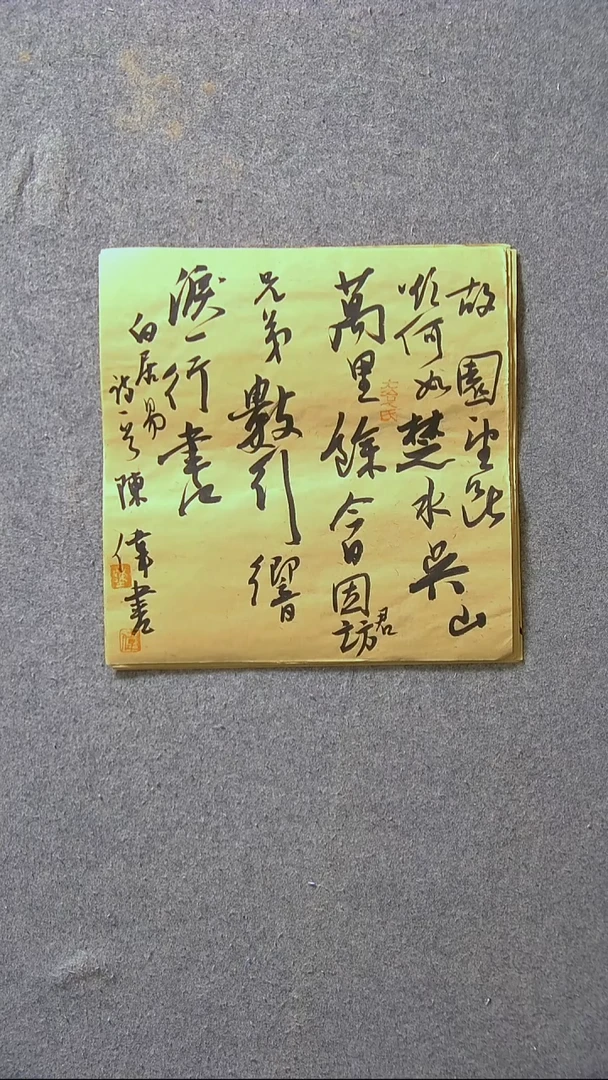 故園望斷
欲何如楚水吳山
萬里餘今日因君訪
兄弟數行鄉
淚一行書
白居易
詩一首陳偉書